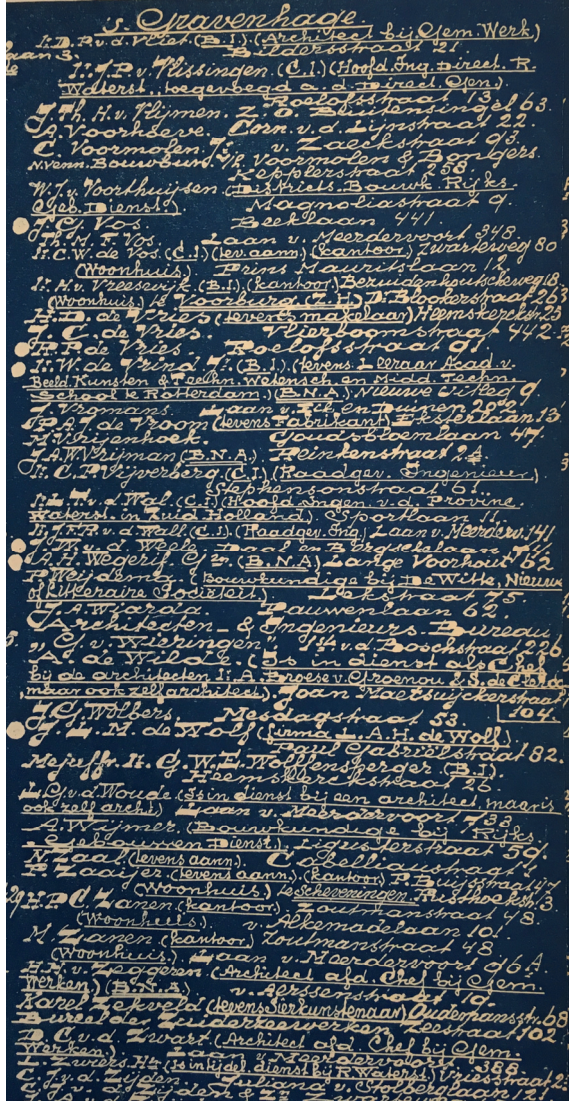 's Gravenhage.
Ir. D. P. v. d. Vliet. (B.I.) (Architect bij Gem. Werk.)
Bildersstraat 21.
Ir. J. P. v. Vlissingen. (C.I.) (Hoofd. Ing. Direct. R.
Waterst. toegevoegd a. d. Direct. Gen.)
Roelofsstraat 13.
J. Th. H. v. Vlijmen. Z. O. Buitensingel 63.
A. Voorhoeve. Corn. v. d. Lijnstraat 22.
C. Voormolen Jr. v. Zaeckstraat 93.
N. Venn. Bouwbur. v/h Voormolen & Bongers.
Kepplerstraat 258
W. J. v. Voorthuijsen. (Districts. Bouwk. Rijks
Geb. Dienst). Magnoliastraat 9.
J. G. Vos. Beeklaan 441.
Th. M. F. Vos. Laan v. Meerdervoort 348.
Ir. C. W. de Vos. (C.I.) (tev. aann.) (kantoor) Zwarteweg 80
(Woonhuis) Prins Mauritslaan 12.
Ir. H. v. Vreeswijk. (B.I.) (kantoor) Bezuidenhoutscheweg 18
(Woonhuis) te Voorburg (Z.H.) D. Blookerstraat 263
H. D. de Vries (tevens makelaar) Heemskerckstr. 23
J. C. de Vries Vlierboomstraat 442.
P. P. de Vries. Roelofsstraat 91.
Ir. W. de Vrind Jr. (B.I.). (tevens Leeraar Acad. v.
Beeld. Kunsten & Techn. Wetensch. en Midd. Techn.
School te Rotterdam.) (B.N.A.) Nieuwe Uitleg 9.
J. Vromans. Laan v. Eik en Duinen 202.
P. A. J. de Vroom (tevens Fabrikant) Eksterlaan 13
M. Vrijenhoek. Goudsbloemlaan 47.
J. A. W. Vrijman (B.N.A.) Reinkenstraat 24.
Ir. C. P. Vijverberg. (C.I.) (Raadgev. Ingenieur)
Stephensonstraat 61.
Ir. L. T. v. d. Wal. (C.I.) (Hoofd Ingen. v. d. Provinc.
Waterst. in Zuid Holland) Sportlaan 11.
Ir. J. H. R. v. d. Wall. (C.I.) (Raadgev. Ing.) Laan v. Meerderv. 141
J. v. d. Weele Daal en Bergschelaan
A. H. Wegerif Gzn. (B.N.A.) Lange Voorhout 62
P. Weijdema. (Bouwkundige bij De Witte, Nieuwe
of Litteraire Societeit). Lekstraat 75.
J. A. Wiarda. Pauwenlaan 62.
Architecten- & Ingenieurs. Bureau
„ G. v. Wieringen" 1ste v. d. Boschstraat 226
A. de Wilde. (Is in dienst als Chef
bij de architecten Ir. A. Broese v. Groenou & S. de Clerq
maar ook zelf architect). Joan Maetsuijckerstraat
104.
J. G. Wolbers. Mesdagstraat 53.
J. L. M. de Wolf (firma L. A. H. de Wolf.)
Paul Gabriëlstraat 82.
Mejuffr. Ir. G. W. E. Wolffensperger. (B.I.)
Heemskerckstraat 26.
L. G. v. d. Woude. (Is in dienst bij een architect, maar is
ook zelf archt.) Laan v. Meerdervoort 733
A. Weijmer. (Bouwkundige bij Rijks
Gebouwen Dienst). Ligusterstraat 59.
N. Zaal (tevens aann.) Cabelliaustraat 1.
R. Zaaijer (tevens aann.) (kantoor) P. Buijsstraat 47
(Woonhuis) te Scheveningen. Risthoekstr. 3
H. P. C. Zanen. (kantoor) Zoutmanstraat 48
(Woonheels.) v. Alkemadelaan 101.
M. Zanen. (kantoor) Zoutmanstraat 48
(Woonhuis.) Laan v. Meerdervoort 96A.
H. H. v. Zeggeren. (Architect afd. Chef bij Gem.
Werken) (B.N.A.) v. Aerssenstraat 19.
Karel Zekveld (tevens Sierkunstenaar) Oudemansstr. 68
Bureau der Zuiderzeewerken. Zeestraat 102.
D. C. v. d. Zwart. (Architect afd. Chef bij Gem.
Werken.) Laan v. Meerdervoort 388.
L. Zwiers Hz. (Is in tijdel. dienst bij R. Waterst.) Vriesstraat
C. J. v. d. Zijden. Juliana v. Stolberglaan 121